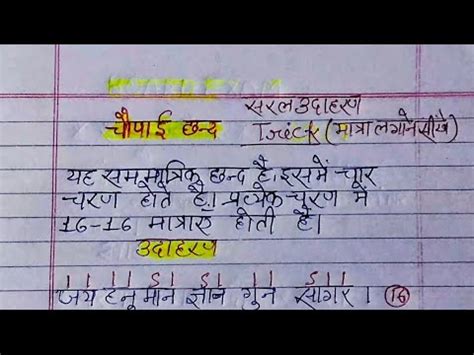 सरल उदाहरण
चौपाई छन्द Trick (मात्रा लगाने सीखे)
यह सम मात्रिक छन्द है। इसमें चार
चरण होते है। प्रत्येक चरण में
16-16 मात्राएं होती है।
उदाहरण
।। ।।ऽ। ऽ। ।। ऽ।।
जय हनुमान ज्ञान गुन सागर। 16